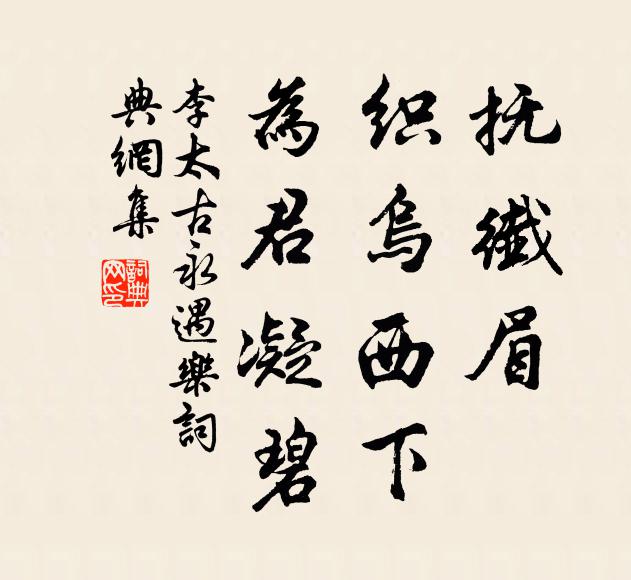 抚纎眉
织乌西下
為君凝碧
李太古永遇樂詞
典網集
詞典
网印